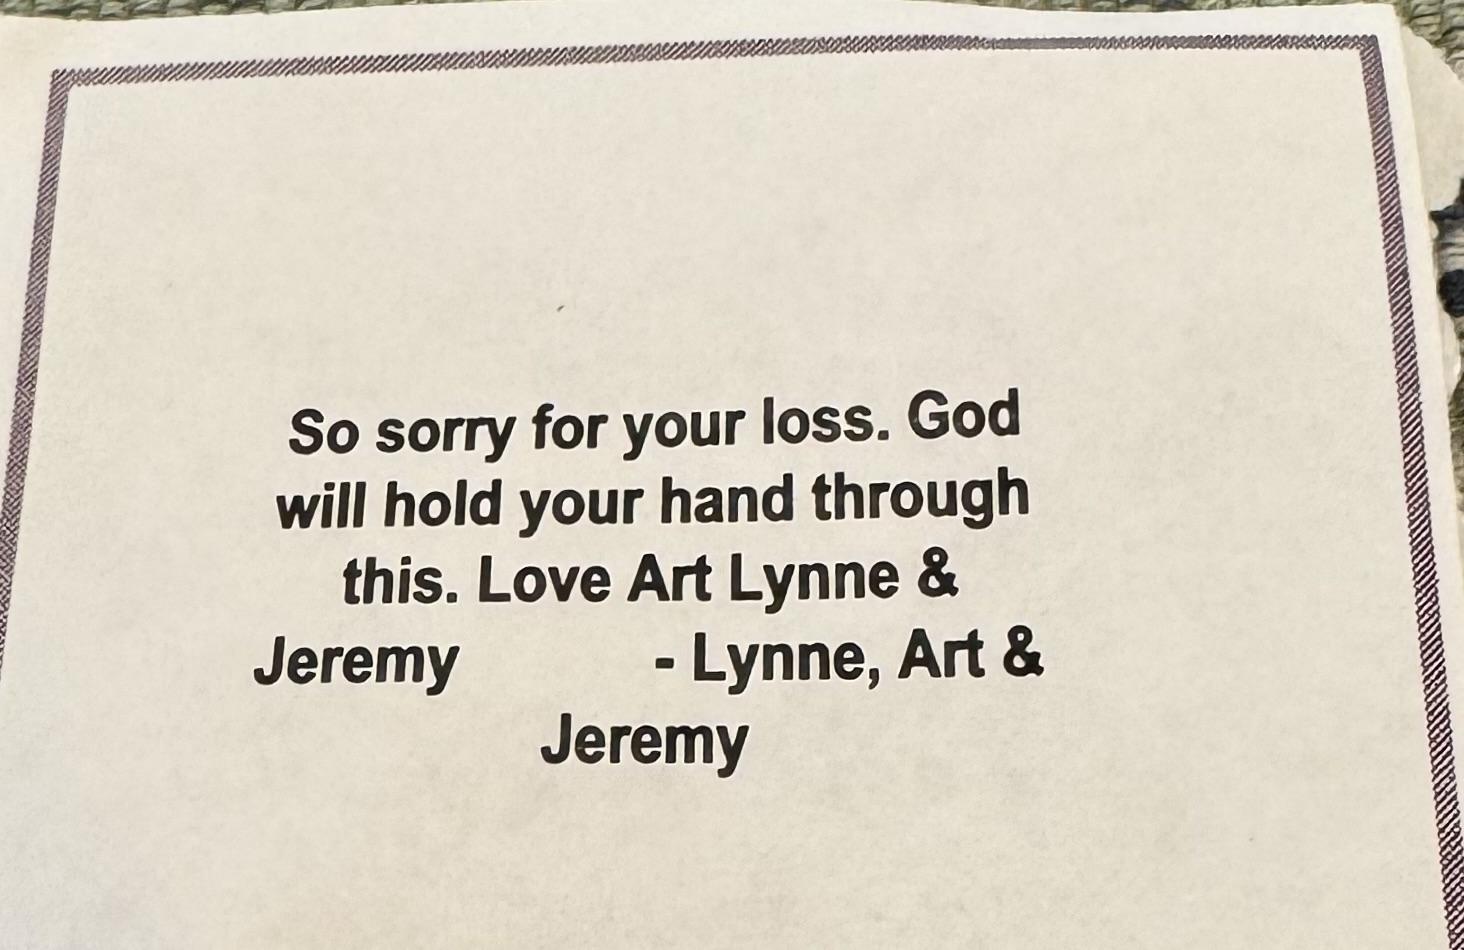 So sorry for your loss. God
will hold your hand through
this. Love Art Lynne &
Jeremy - Lynne, Art &
Jeremy